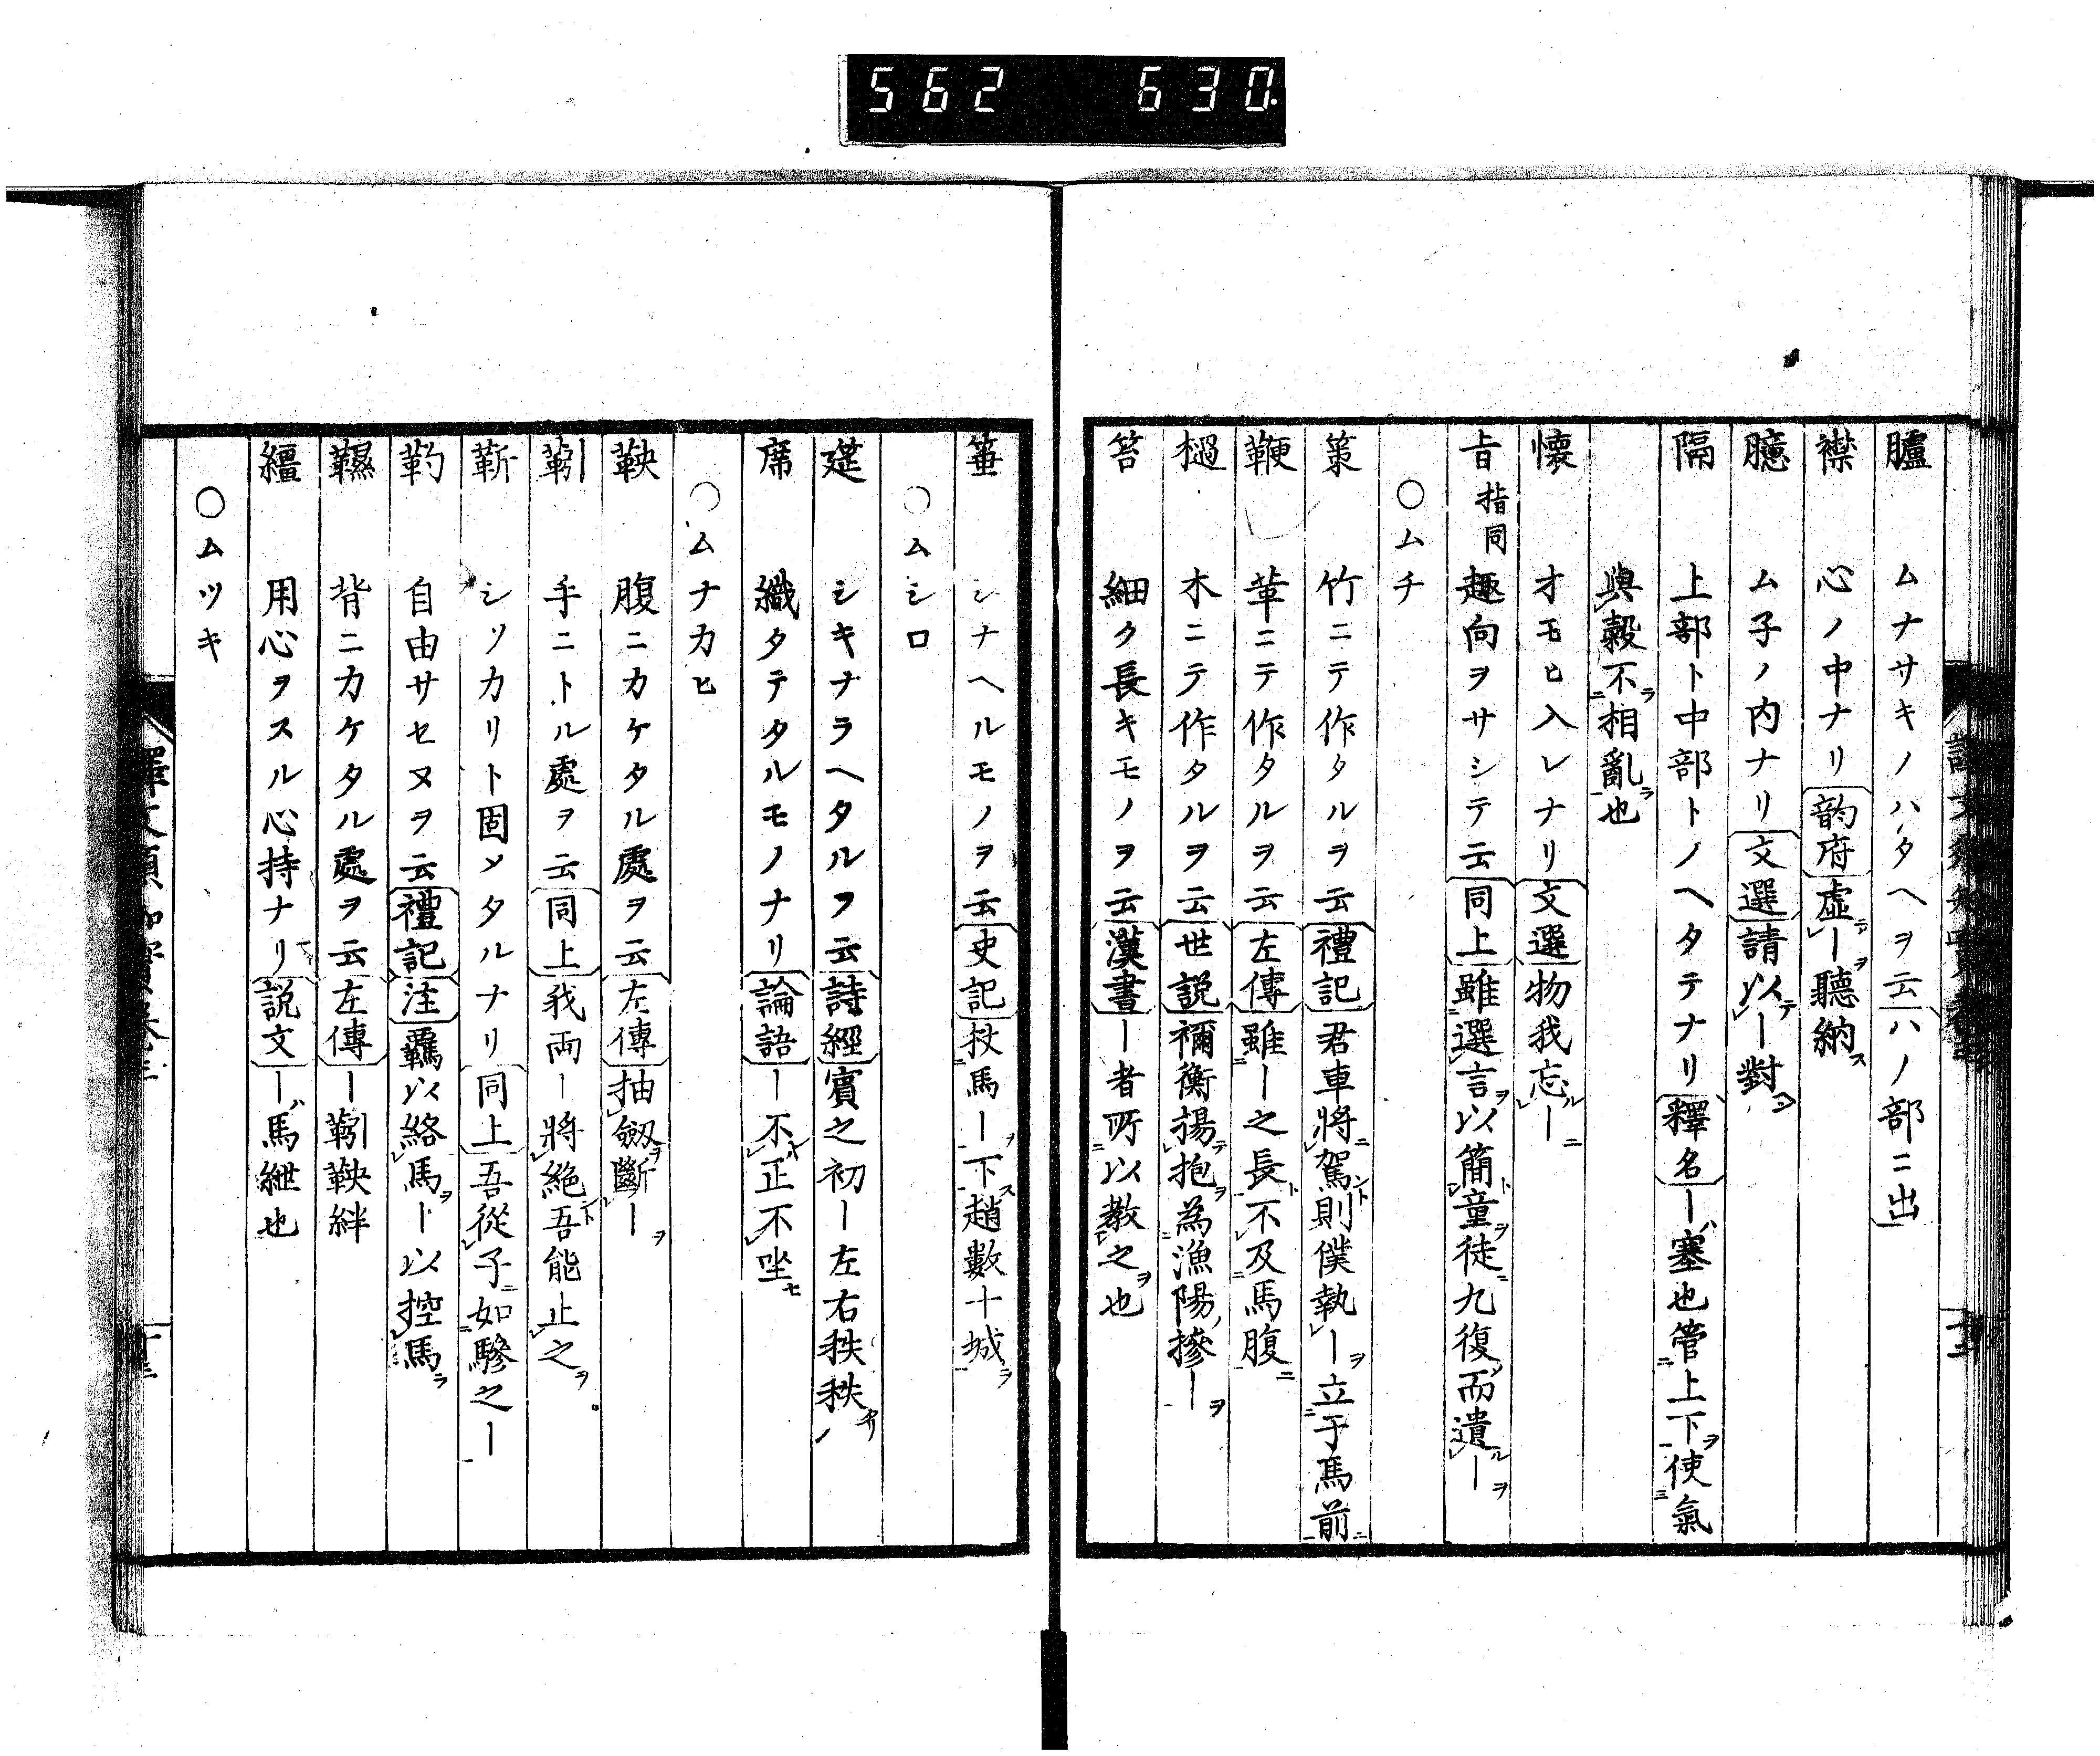 562 630.
臚 ムナサキノハタヘヲ云ハノ部ニ出
襟 心ノ中ナリ韵府虚テ｜ヲ聽納ス
臆 ム子ノ内ナリ文選請以テ｜對
隔 上部ト中部トノヘタテナリ釋名｜ハ塞也管上下ヲ使氣
與穀不相亂也
懐 オモヒ入レナリ文選物我忘ル｜ニ
旨 指同 趣向ヲサシテ云同上雖選言ヲ以簡童ヲ徒九復而遺ル｜ヲ
○ムチ
策 竹ニテ作タルヲ云禮記君車將ニ駕ント則僕執｜ヲ立于馬前ニ
鞭 革ニテ作タルヲ云左傳雖｜之長ト不及馬腹ニ
檛 木ニテ作タルヲ云世説禰衡揚テ抱ヲ為漁陽ノ摻｜ヲ
笞 細ク長キモノヲ云漢書｜者所以教之ヲ也
箠 シナヘルモノヲ云史記杖馬｜ヲ下ス趙數十城ヲ
○ムシロ
筵 シキナラヘタルヲ云詩經賓之初｜左右秩秩
席 織タテタルモノナリ論語｜不正不坐セ
○ムナカヒ
鞅 腹ニカケタル處ヲ云左傳抽劔ヲ斷｜ヲ
靷 手ニトル處ヲ云同上我兩｜將絶吾能止之ヲ
靳 シツカリト固メタルナリ同上吾從子ニ如驂之｜
靮 自由サセヌヲ云禮記注羈以絡馬ヲ｜以控馬ヲ
韅 背ニカケタル處ヲ云左傳｜靷鞅絆
繮 用心ヲスル心持ナリ説文｜ハ馬紲也
○ムツキ
譯文須知實卷三